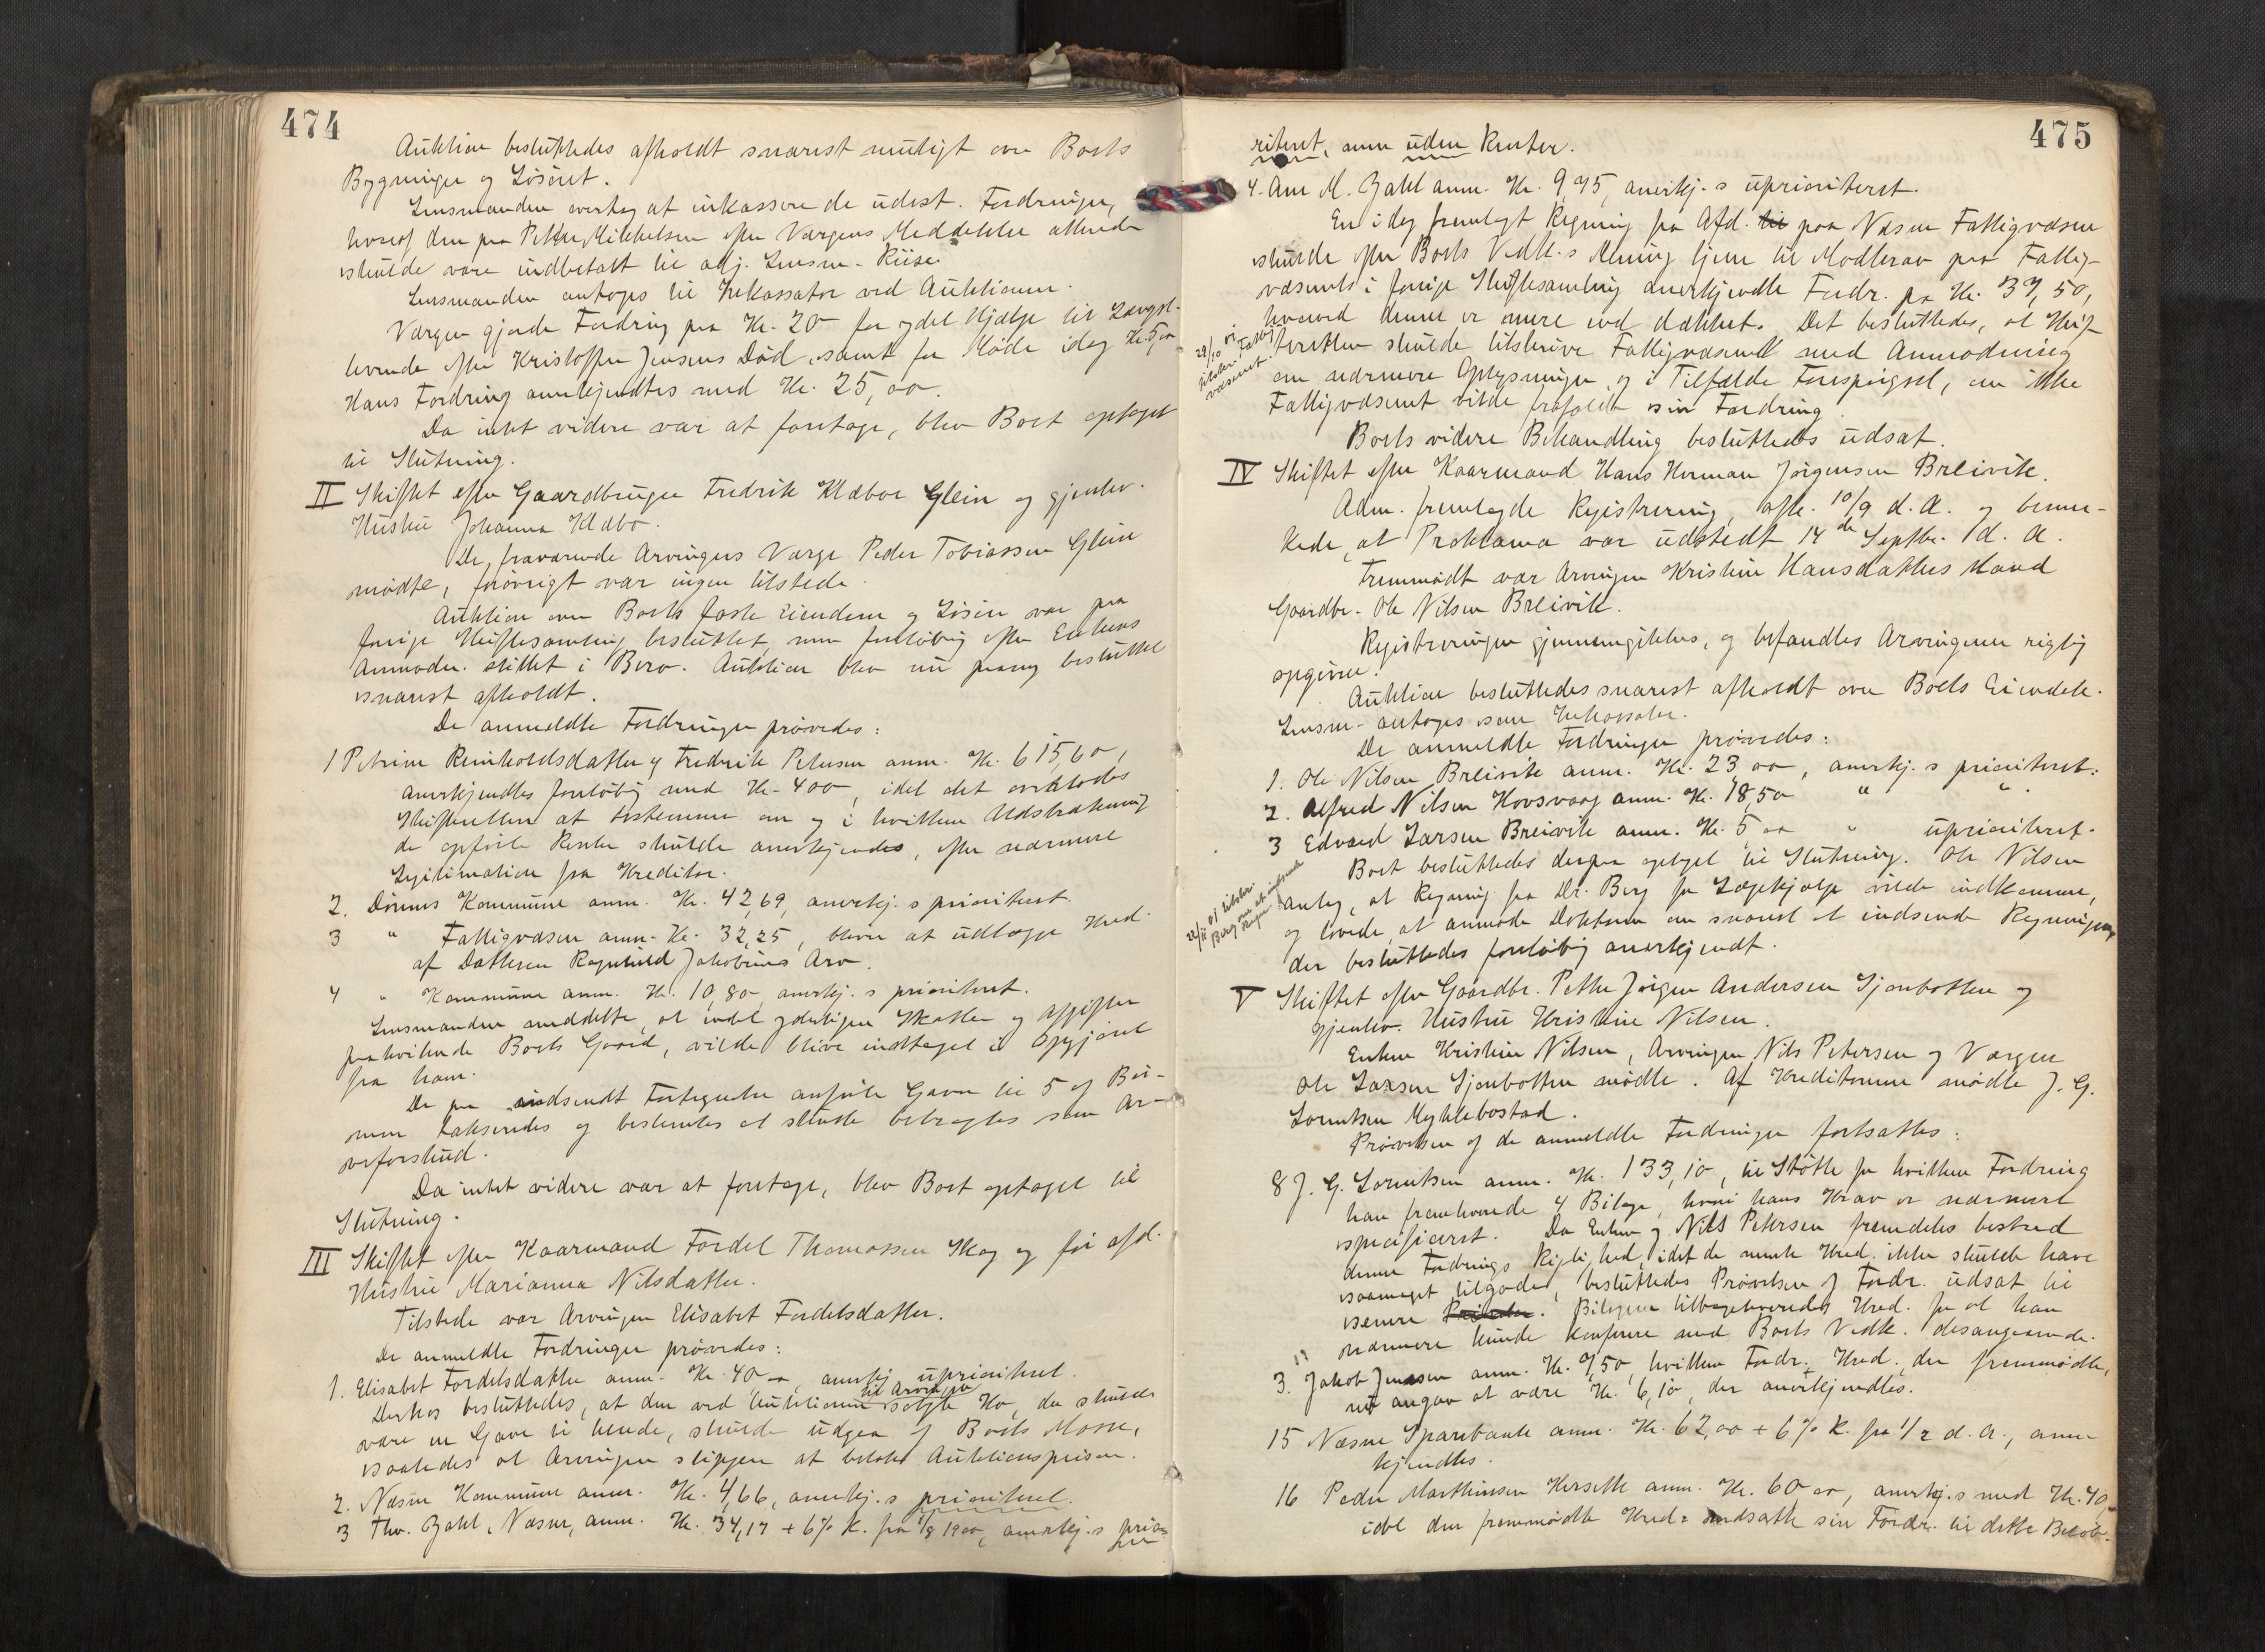 474
Auktion besluttedes afholdt snarest muligt over Boets
Bygninger og Løsøret.
Lensmanden overtog at inkassere de udest. Fordringer,
hvoraf den paa Petter Mikkelsen efter Værgens Meddelelse allerede
skulde være indbetalt til adj. Lensm. Riise.
Lensmanden antoges til Inkassator ved Auktionen.
Værgen gjorde Fordring paa Kr. 20 for ydet Hjælp til Længst-
levende efter Kristoffer Jensens Død, samt for Møde idag Kr. 5,00
Hans Fordring anerkjendtes med Kr. 25,00.
Da intet videre var at foretage, blev Boet optaget
til Slutning.
II Skiftet efter Gaardbruger Fredrik Klæboe Glein og gjenlev.
Hustru Johanna Klæbo.
De fraværende Arvingers Værge Peder Tobiassen Glein
mødte, forøvrigt var ingen tilstede.
Auktion over Boets faste Eiendom og Løsøre var paa
forrige Skiftesamling besluttet, men foreløbig efter Enkens
Anmodn. stillet i Bero. Auktion blev nu paany besluttet
snarest afholdt.
De anmeldte Fordringer prøvedes:
1 Petrine Reinholdsdatter og Fredrik Petersen anm. Kr. 615,60,
anerkjendtes foreløbig med Kr. 400, idet det overlodes
Skifteretten at bestemme om og i hvilken Udstrækning
de opførte Renter skulde anerkjendes, efter nærmere
Legitimation fra Kreditor.
2. Dønnes Kommune anm. Kr. 42,69, anerkj. s prioriteret.
3 " Fattigvæsen anm. Kr. 32,25, bliver at udlægge Kred.
af Datteren Ragnhild Jakobines Arv.
4 " Kommune anm. Kr. 10,80, anerkj. s prioriteret.
Lensmanden meddelte, at endel yderligere Skatter og Afgifter
paahvilende Boets Gaard, vilde blive indtaget i Opgjøret
fra ham.
De paa indsendt Fortegnelse anførte Gaver til 5 af Bør-
nene takseredes og bestemtes at skulde betragtes som Ar-
veforskud.
Da intet videre var at foretage, blev Boet optaget til
Slutning.
III Skiftet efter Kaarmand Fordel Thomassen Skog og før afd.
Hustru Marianna Nilsdatter.
Tilstede var Arvingen Elisabet Fordelsdatter.
De anmeldte Fordringer prøvedes:
1. Elisabet Fordelsdatter anm. Kr. 40,00, anerkj. uprioriteret.
Derhos besluttedes, at den ved Auktionen til Arvingen solgte Ko, der skulde
være en Gave til hende, skulde udgaa af Boets Masse,
saaledes at Arvingen slipper at betale Auktionsprisen.
2. Næsne Kommune anm. Kr. 4,66, anerkj. s prioriteret.
3 Thv. Zahl, Næsne, anm. Kr. 34,17 + 6% R. fra 1/8 1900, anerkj. s prio-
475
riteret, men uden Renter.
4. Ane M. Zahl anm. Kr. 9,75, anerkj. s uprioriteret.
En idag fremlagt Regning fra Afd. til paa Næsne Fattigvæsen
skulde efter Boets Vedk.s Mening tjene til Modkrav paa Fattig-
væsenets i forrige Skiftesamling anerkjendte Fordr. paa Kr. 37,50,
hvorved denne er mere end dækket. Det besluttedes, at Skif-
teretten skulde tilskrive Fattigvæsenet med Anmodning
om nærmere Oplysninger og i Tilfælde Forespørgsel, om ikke
Fattigvæsenet vilde frafalde sin Fordring.
29/10 01 tilskr. Fattigvæsenet.
Boets videre Behandling besluttedes udsat.
IV Skiftet efter Kaarmand Hans Herman Jørgensen Breivik.
Adm. fremlagde Registrering, afh. 10/9 d. A. og bemær-
kede, at Proklama var udstedt 14de Septbr. d. A.
Fremmødt var Arvingen Kristine Hansdatters Mand
Gaardbr. Ole Nilsen Breivik.
Registreringen gjennemgikkes, og befandtes Arvingerne rigtig
opgivne.
Auktion besluttedes snarest afholdt over Boets Eiendele.
Lensm. antoges som Inkassator.
De anmeldte Fordringer prøvedes:
1. Ole Nilsen Breivik anm. Kr. 23,00, anerkj. s prioriteret.
2. Alfred Nilsen Hovsvaag anm. Kr. 18,50 " "
3 Edvard Larsen Breivik anm. Kr. 5,00 " uprioriteret.
Boet besluttedes derpaa optaget til Slutning. Ole Nilsen
antog, at Regning fra Dr. Berg for Lægehjælp vilde indkomme,
og lovede at anmode Doktoren om snarest at indsende Regningen,
der besluttedes foreløbig anerkjendt.
22/11 01 tilskr. Berg om at indsende Regn.
V Skiftet efter Gaardbr. Petter Jørgen Andersen Sjonbotten og
gjenlev. Hustru Kristine Nilsen.
Enken Kristine Nilsen, Arvingen Nils Petersen og Værgen
Ole Larsen Sjonbotten mødte. Af Kreditorerne mødte J. G.
Lorentsen Myklebostad.
Prøvelsen af de anmeldte Fordringer fortsattes:
8 J. G. Lorentsen anm. Kr. 133,10, til Støtte for hvilken Fordring
han fremlagde 4 Bilage, hvori hans Krav er nærmere
specificeret. Da Enken og Nils Petersen fremdeles bestred
denne Fordrings Rigtighed, idet de mente Kred. ikke skulde have
saameget tilgode, besluttedes Prøvelsen af Fordr. udsat til
senere. Bilagene tilbageleveredes Kred. for at han
nærmere kunde konferere med Boets Vedk. desangaaende.
3. Jakob Jenssen anm. Kr. 7,50, hvilken Fordr. Kred., der fremmødte,
nu angav at være Kr. 6,10, der anerkjendtes.
15 Næsne Sparebank anm. Kr. 62,00 + 6% R. fra 1/2 d. A., aner-
kjendtes.
16 Peder Marthinsen Herseth anm. Kr. 60,00, anerkj. s med Kr. 40,
idet den fremmødte Kred. nedsatte sin Fordr. til dette Beløb.